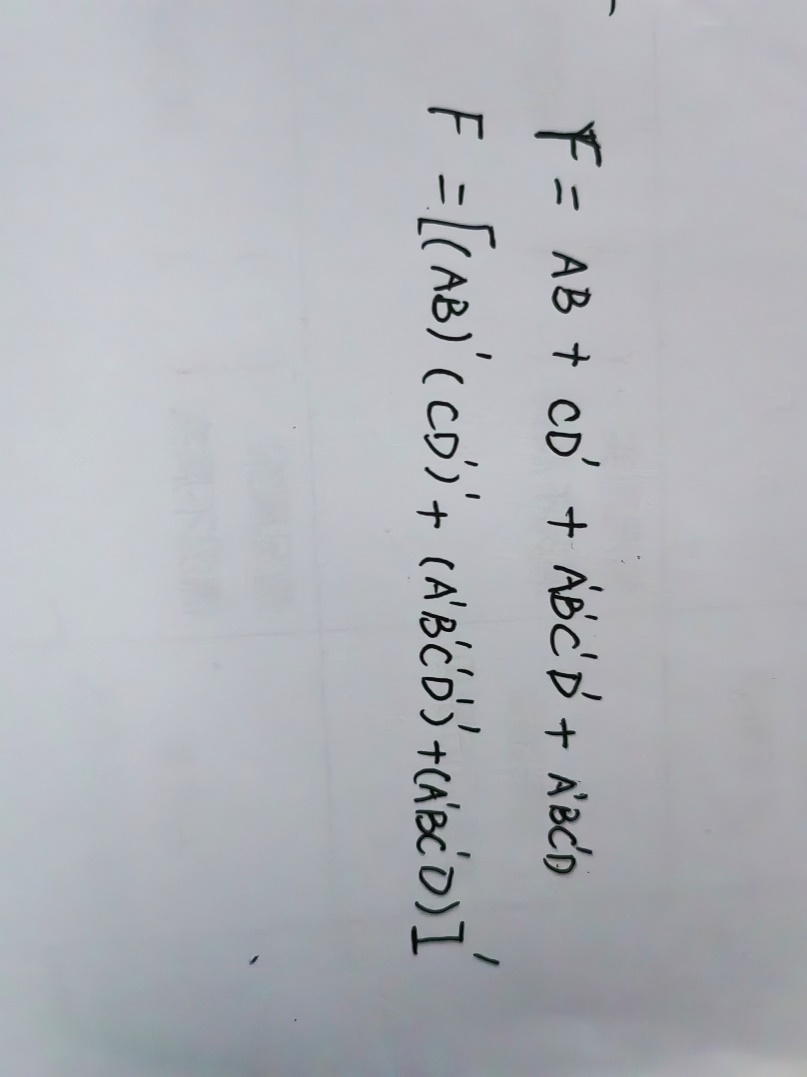 F = AB + CD' + A'B'C'D' + A'BC'D
F = [(AB)' (CD')' + (A'B'C'D')' + (A'BC'D)]'